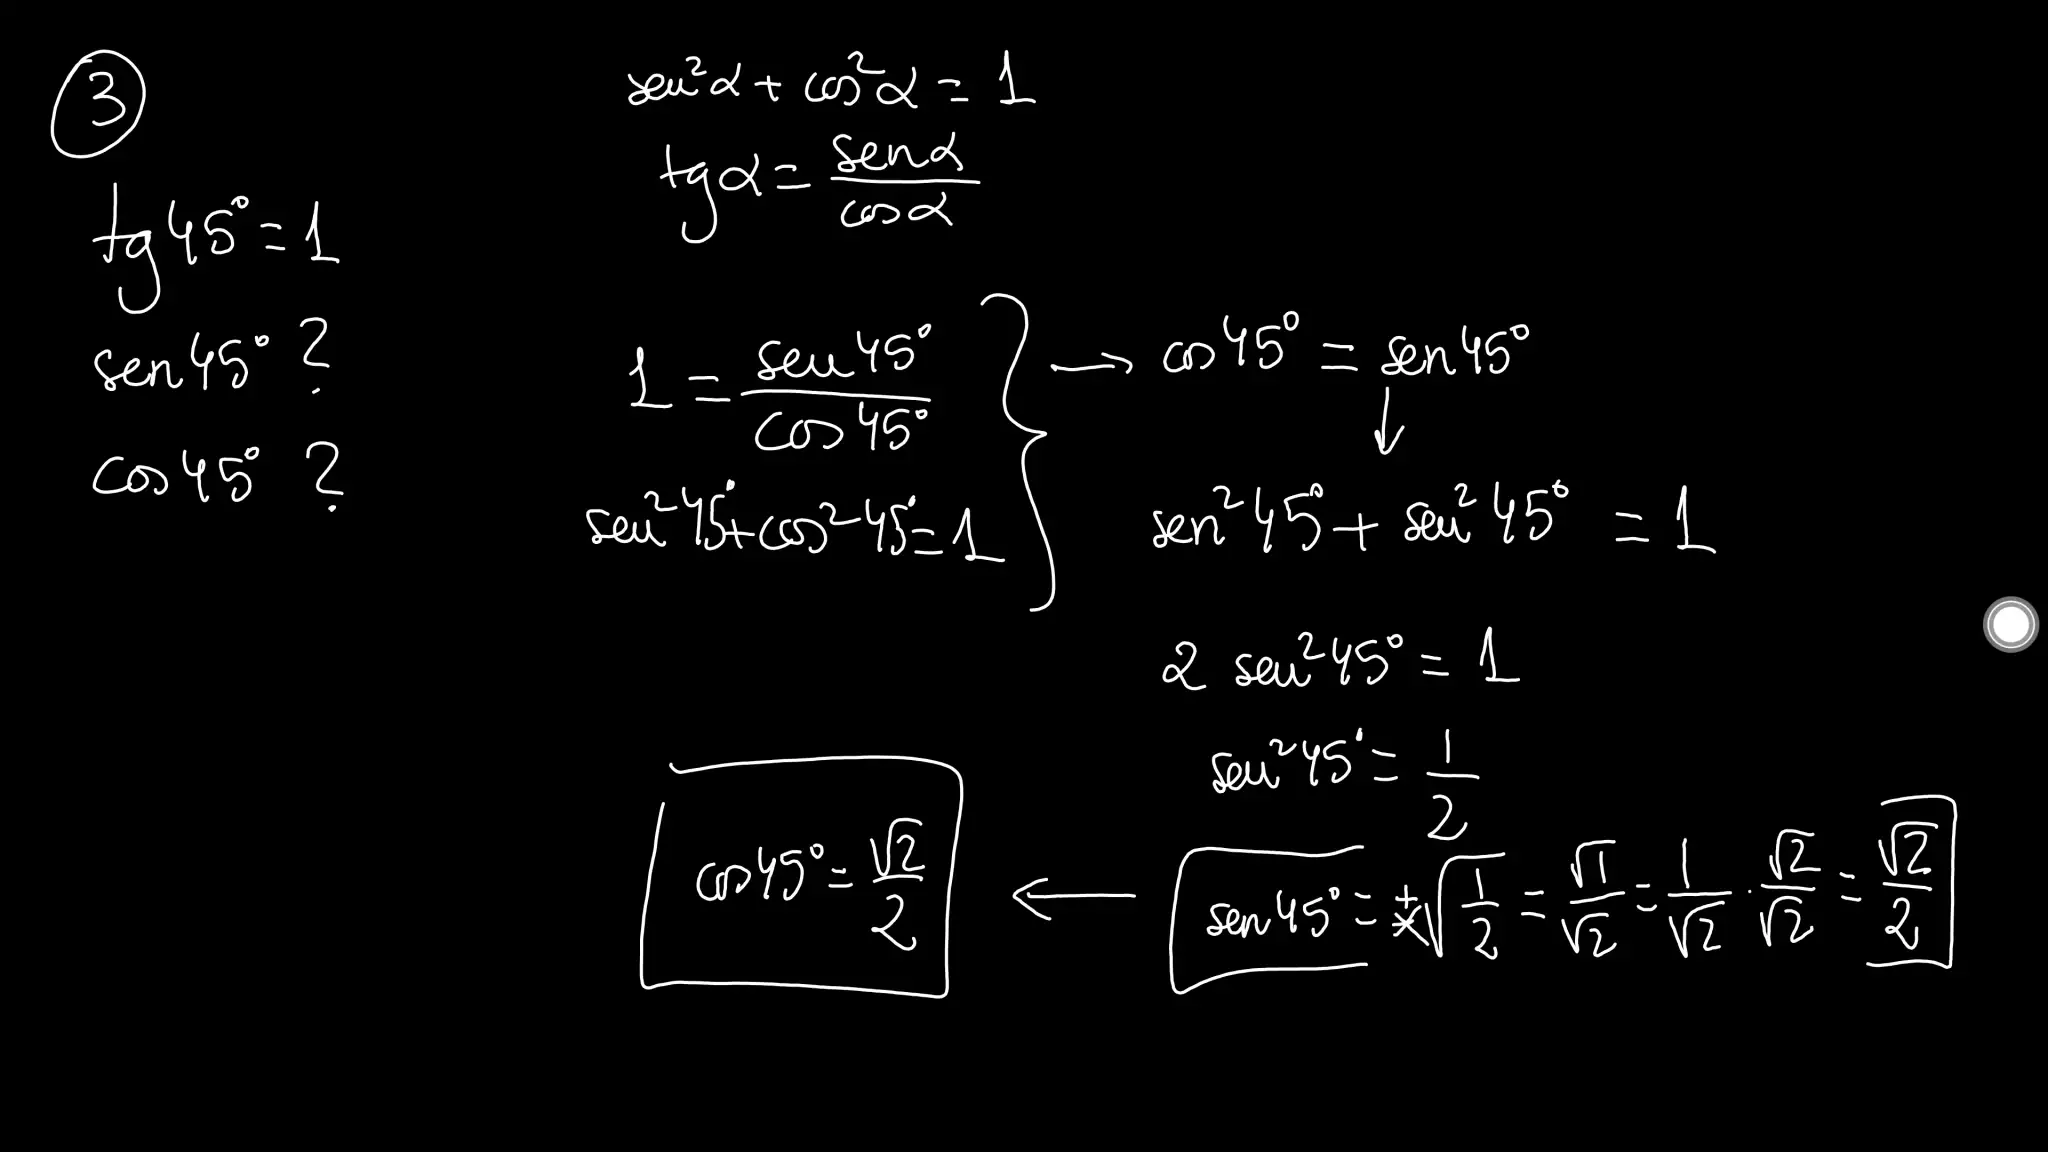 3
tg 45° = 1
sen 45° ?
cos 45° ?
sen²α + cos²α = 1
tg α = senα / cosα
1 = sen 45° / cos 45°
sen² 45° + cos² 45° = 1
→ cos 45° = sen 45°
↓
sen² 45° + sen² 45° = 1
2 sen² 45° = 1
sen² 45° = 1/2
sen 45° = ±√(1/2) = √1/√2 = 1/√2 · √2/√2 = √2/2
←
cos 45° = √2/2